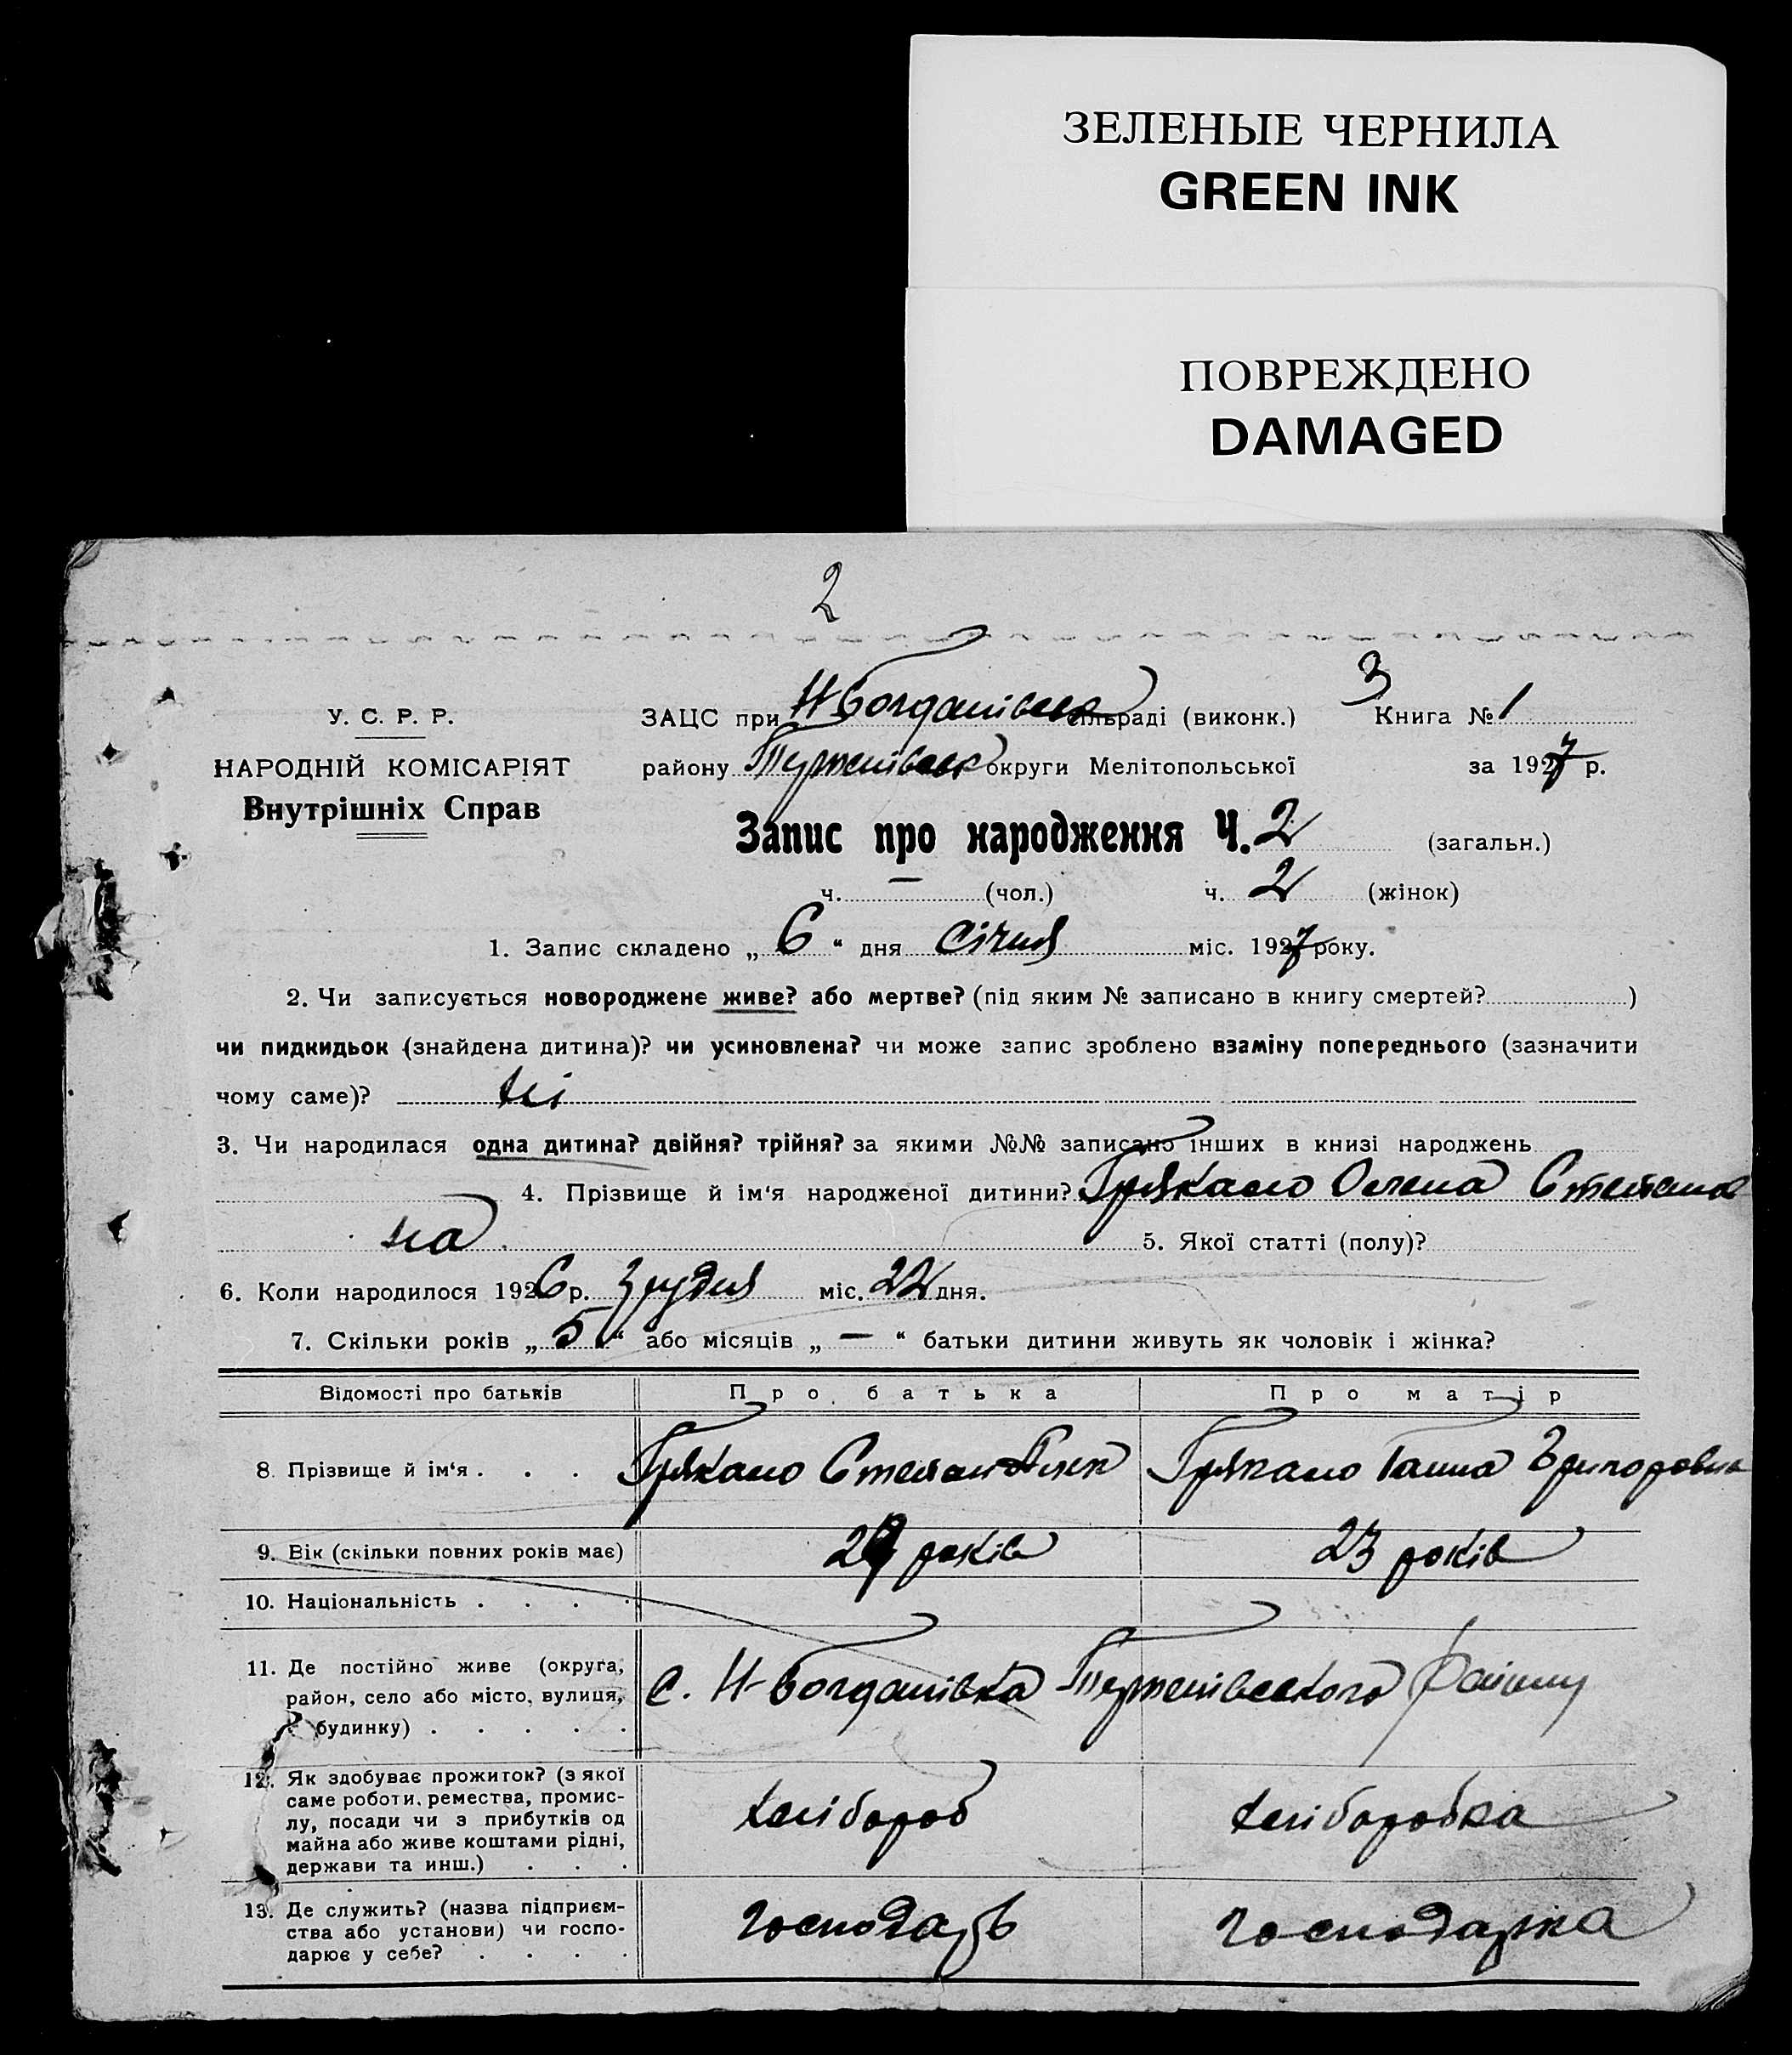 ЗЕЛЕНЫЕ ЧЕРНИЛА
GREEN INK
ПОВРЕЖДЕНО
DAMAGED
2
3
У. С. Р. Р.
НАРОДНІЙ КОМІСАРІЯТ
Внутрішніх Справ
ЗАЦС при Н Богданівськ сільраді (виконк.) Книга № 1
району округи Мелітопольської за 1927 р.
Запис про народження Ч. 2 (загальн.)
ч. — (чол.) ч. 2 (жінок)
1. Запис складено „ 6 “ дня січня міс. 1927 року.
2. Чи записується новороджене живе? або мертве? (під яким № записано в книгу смертей? )
чи пидкидьок (знайдена дитина)? чи усиновлена? чи може запис зроблено взаміну попереднього (зазначити
чому саме)? Ні
3. Чи народилася одна дитина? двійня? трійня? за якими №№ записано інших в книзі народжень
4. Прізвище й ім‘я народженої дитини? Грякало Олена Степанов
на 5. Якої статті (полу)?
6. Коли народилося 1926 р. грудня міс. 22 дня.
7. Скільки років „ 5 “ або місяців „ — “ батьки дитини живуть як чоловік і жінка?
Відомості про батьків Про батька Про матір
8. Прізвище й ім‘я . . . Грякало Степан Грякало Ганна Григоровна
9. Вік (скільки повних років має) 29 років 23 років
10. Національність . . . .
11. Де постійно живе (округа,
район, село або місто, вулиця,
будинку) . . . . .
с. Н-Богданівка району
12. Як здобуває прожиток? (з якої
саме роботи, ремества, промис-
лу, посади чи з прибутків од
майна або живе коштами рідні,
держави та инш.) . . .
хлібороб хліборобка
13. Де служить? (назва підприєм-
ства або установи) чи госпо-
дарює у себе? . . . .
господарь господарка